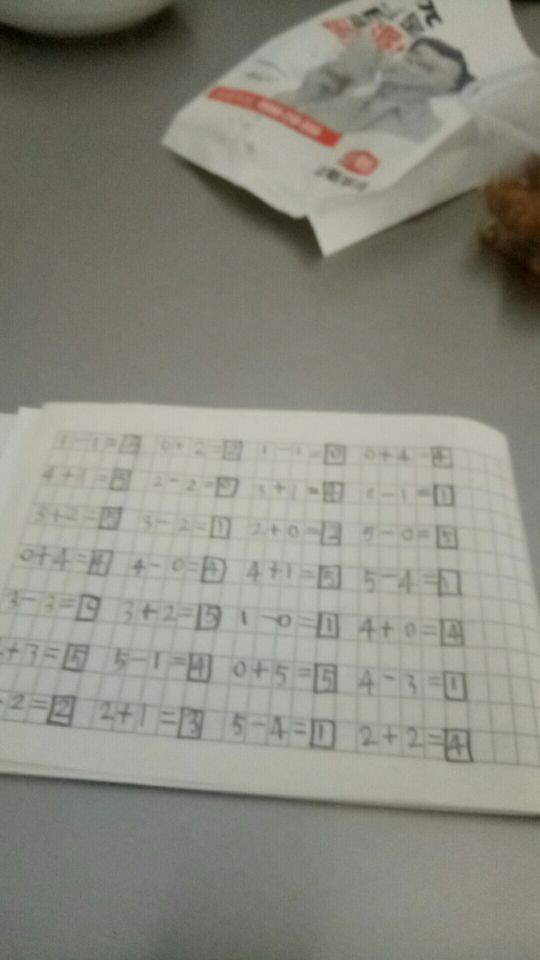 3-1=2 0+2=2 1-1=0 0+4=4
4+1=5 2-2=0 3+1=4 2-1=1
3+2=5 3-2=1 2+0=2 5-0=5
0+4=4 4-0=4 4+1=5 5-4=1
3-3=0 3+2=5 1-0=1 4+0=4
+3=5 5-1=4 0+5=5 4-3=1
-2=2 2+1=3 5-4=1 2+2=4